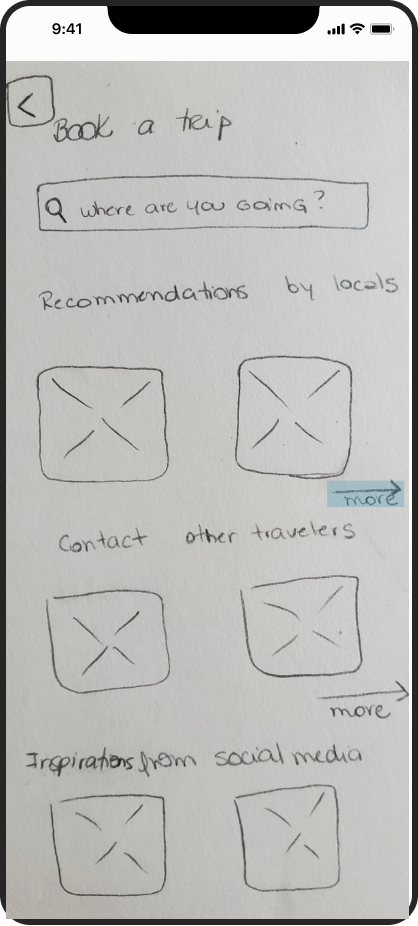 9:41
Book a trip
where are you going?
Recommendations by locals
more
Contact other travelers
more
Inspirations from social media